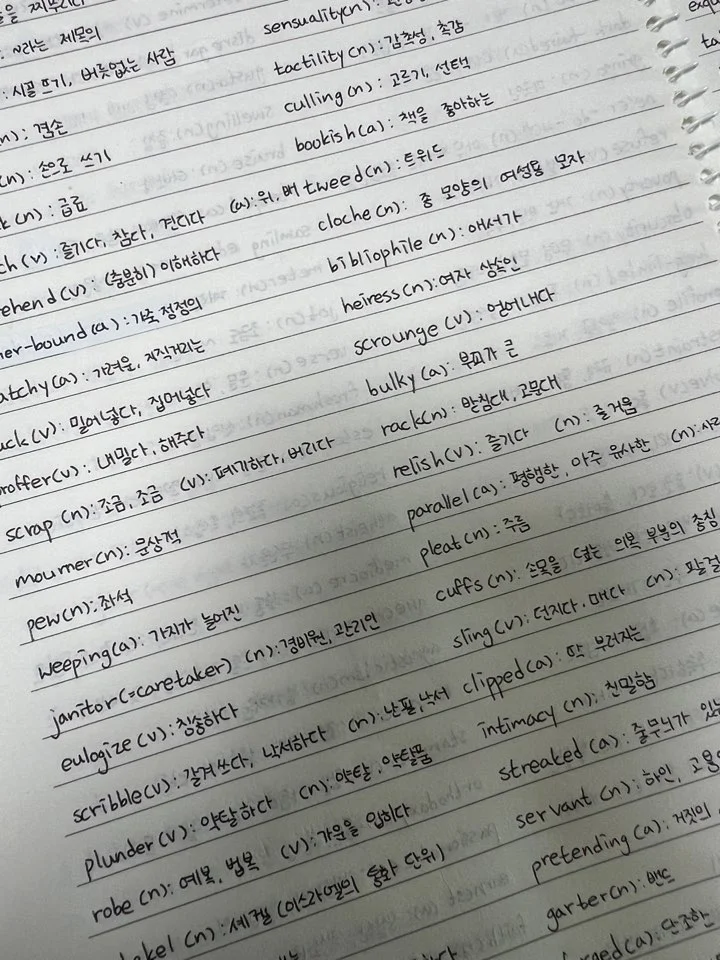 을
~라는 제목의
: 시골 뜨기, 버릇없는 사람
n): 겸손
(n): 손으로 쓰기
k (n): 급료
ch (v): 즐기다, 참다, 견디다 (a): 위, 배
ehend (v): (충분히) 이해하다
her-bound (a): 가죽 정정의
atchy (a): 가려운, 지직거리는
uck (v): 밀어넣다, 집어넣다
roffer (v): 내밀다, 해주다
scrap (n): 조금, 조금 (v): 폐기하다, 버리다
mourner (n): 문상객
pew (n): 좌석
weeping (a): 가지가 늘어진
janitor (=caretaker) (n): 경비원, 관리인
eulogize (v): 칭송하다
scribble (v): 갈겨쓰다, 낙서하다 (n): 난필, 낙서
plunder (v): 약탈하다 (n): 약탈, 약탈품
robe (n): 예복, 법복 (v): 가운을 입히다
hekel (n): 세켈 (이스라엘의 통화 단위)
sensuality (n):
tactility (n): 감촉성, 촉감
culling (n): 고르기, 선택
bookish (a): 책을 좋아하는
tweed (n): 트위드
cloche (n): 종 모양의 여성용 모자
bibliophile (n): 애서가
heiress (n): 여자 상속인
scrounge (v): 얻어내다
bulky (a): 부피가 큰
rack (n): 받침대, 고문대
relish (v): 즐기다 (n): 즐거움
parallel (a): 평행한, 아주 유사한 (n):
pleat (n): 주름
cuffs (n): 손목을 덮는 의복 부분의 총칭
sling (v): 던지다, 매다 (n):
clipped (a): 딱 부러지는
intimacy (n): 친밀함
streaked (a): 줄무늬가 있는
servant (n): 하인,
pretending (a): 거짓의
garter (n): 밴드
ged (a): 단조한